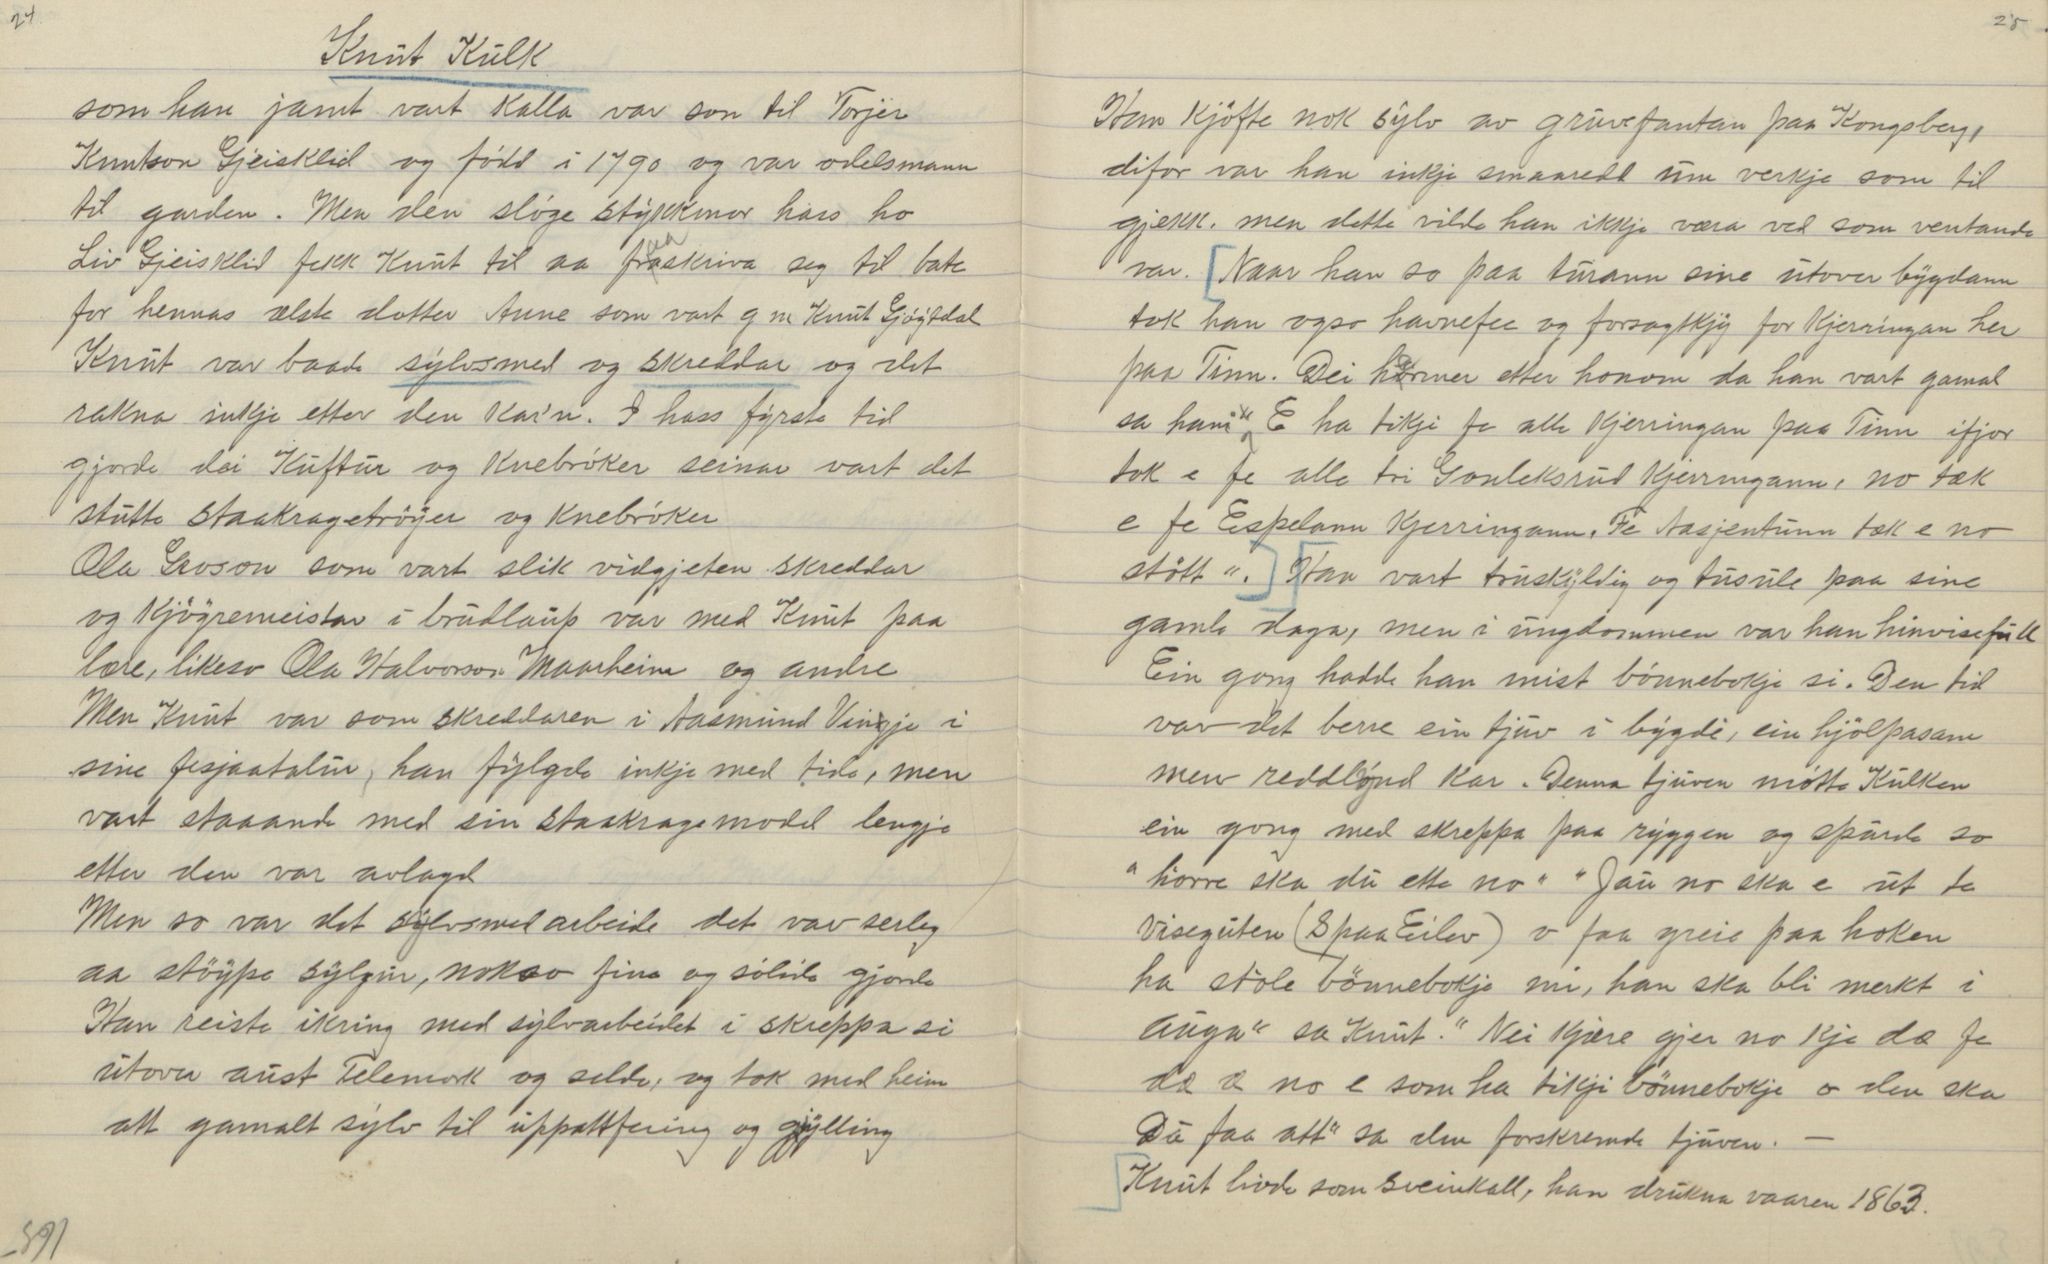 24
Knut Kulk
som han jamt vart kalla var son til Torjer
Knutson Gjeisklid og född i 1790 og var odelsmann
til garden. Men den slöge stykkmor hass ho
Liv Gjeisklid fekk Knut til aa fraaskriva seg til bate
for hennas elste dotter Anne som vart g m Knut Gjöystdal
Knut var baade sylvsmed og skreddar og det
rakna inkje etter den kar'n. I hass fyrste tid
gjorde dei Kuftur og Knebröker seinar vart det
stutte staakragetröyer og knebröker
Ola Groson som vart slik vidgjeten skreddar
og kjögremeistar i brudlaup var med Knut paa
lære, likeso Ola Halvorson Maarheim og andre
Men Knut var som skreddaren i Aasmund Vinje i
sine fesjaatalun, han fylgde inkje med tide, men
vart staaande med sin staakragemodel lengje
etter den var avlagd
Men so var det sylvsmedarbeide det var serleg
aa stöype sylgur, nokso fine og solide gjorde
Han reiste ikring med sylvarbeidet i skreppa si
utover aust Telemork og selde, og tok med heim
att gamalt sylv til uppattfering og gylling
1651
25
Han kjöfte nok sylv av gruvefantan paa Kongsberg,
difor var han inkje smaaredd um verkje som til
gjekk. men dette vilde han ikkje væra ved som ventande
var. [Naar han so paa turann sine utover bygdann
tok han ogso havnefee og forsagtkjy for Kjerringan her
paa Tinn. Dei hermer etter honom da han vart gamal
sa han: "E ha tikji fe alle Kjerringan paa Tinn ifjor
tok e fe alle tri Gauleksrud Kjerringann, no tæk
e fe Espelann Kjerringann. Fe Aasjentunn tæk e no
stött". ] [Han vart truskyldig og tusule paa sine
gamle daga, men i ungdommen var han hinvisefull
Ein gong hadde han mist bönnebokje si. Den tid
var det berre ein tjuv i bygdi, ein hjölpasam
men reddlynd kar. Denna tjuven mötte Kulken
ein gong med skreppa paa ryggen og spurde so
"horre ska du ette no" "Jau no ska e ut te
Viseguten (Spaa Eilev) o faa greie paa hoken
ha stöle bönnebokje mi, han ska bli merkt i
auga" sa Knut. "Nei kjære gjer no kje dæ fe
dæ æ no e som ha tikji bönnebokje o den ska
Du faa att" sa den forskremde tjuven. —
Knut livde som sveinkall, han drukna vaaren 1863.